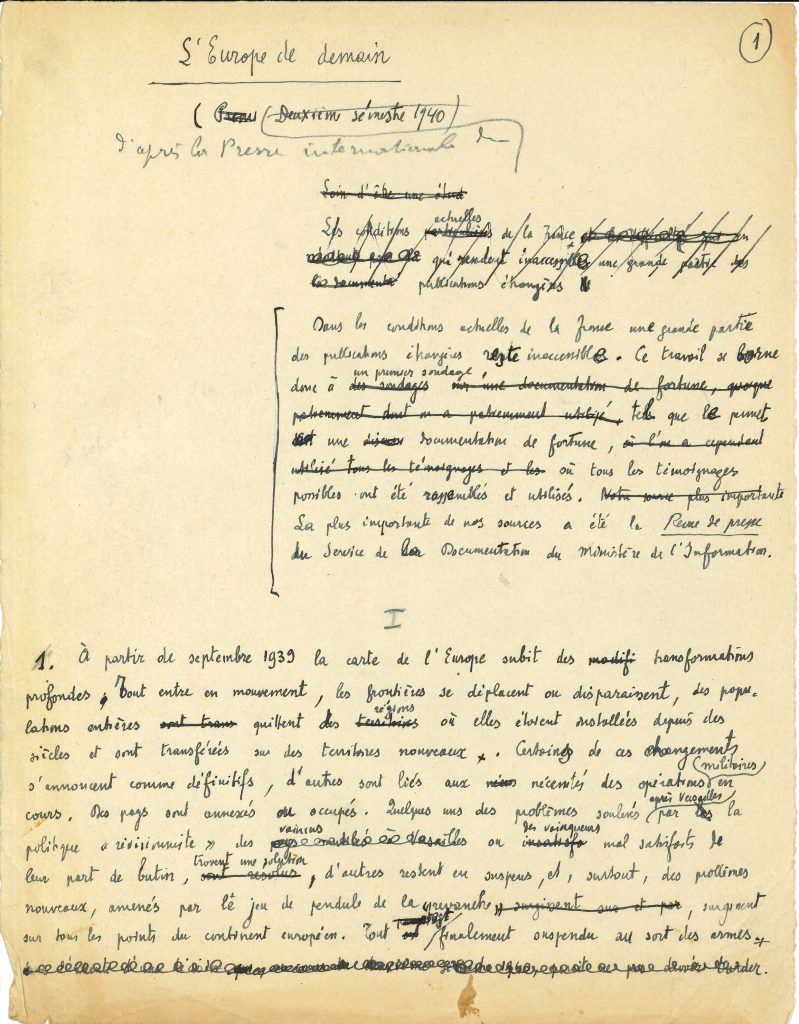 1
L'Europe de demain
( Prem ( Deuxième sémestre 1940 )
d'après la Presse internationale du
Loin d'être une étud
actuelles
Les conditions de la France
qui rendent inaccessible une grande partie des
publications étrangères
Dans les conditions actuelles de la france une grande partie
des publications étrangères reste inaccessible. Ce travail se borne
un premier sondage
donc à des sondages sur une documentation de fortune, quoique
tel que le permet
une documentation de fortune, où l'on a cependant
utilisé tous les témoignages et les où tous les témoignages
possibles ont été rassemblés et utilisés. Notre source plus importante
La plus importante de nos sources a été la Revue de presse
du Service de la Documentation du Ministère de l'Information.
I
1. À partir de septembre 1939 la carte de l'Europe subit des modifi transformations
profondes. Tout entre en mouvement, les frontières se déplacent ou disparaissent, des popu-
régions
lations entières sont trans quittent des territoires où elles étoient installées depuis des
siècles et sont transférées sur des territoires nouveaux. Certaines de ces changements
(militaires)
s'annoncent comme définitifs, d'autres sont liés aux nécessités des opérations en
après Versailles
cours. Des pays sont annexés ou occupés. Quelques uns des problèmes soulevés par la
vaincus des vainqueurs
politique « révisionniste » des pays à Versailles ou insatisfa mal satisfaits de
trouvent une solution
leur part de butin, sont résolus, d'autres restent en suspens, et, surtout, des problèmes
nouveaux, amenés par le jeu de pendule de la « revanche » surgissent sur et par, surgissent
sur tous les points du continent européen. Tout finalement suspendu au sort des armes.